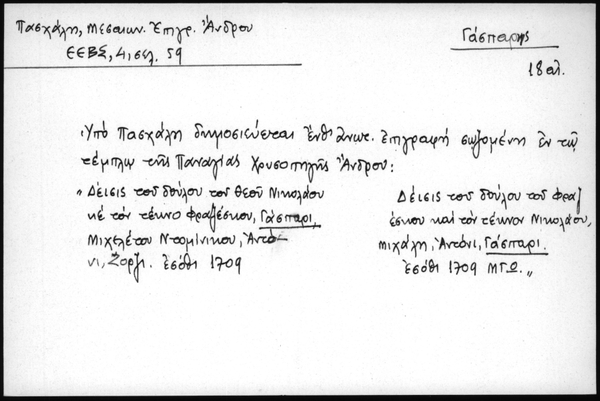 Πασχάλη, Μεσαιων. Ἐπιγρ. Ἄνδρου
ΕΕΒΣ, 4, σελ. 59
Γάσπαρης
18 αἰ.
Ὑπὸ Πασχάλη δημοσιεύεται ἔνθ' ἀνωτ. ἐπιγραφὴ σωζομένη ἐν τῷ
τέμπλῳ τῆς Παναγίας Χρυσοπηγῆς Ἄνδρου:
„ Δέισις τοῦ δούλου τοῦ θεοῦ Νικολάου
κὲ τὸν τέκνο Φραζέσκου, Γάσπαρι,
Μιχελέτου Ντομίνικου, Ἀντό-
νι, Ζόρζι. ἐσόθι 1709
Δέισις τοῦ δούλου τοῦ Φραζ
έσκου καὶ τὸν τέκνον Νικολάου,
Μιχάλη, Ἀντόνι, Γάσπαρι.
Ἐσόθι 1709 ΜΓΩ. „